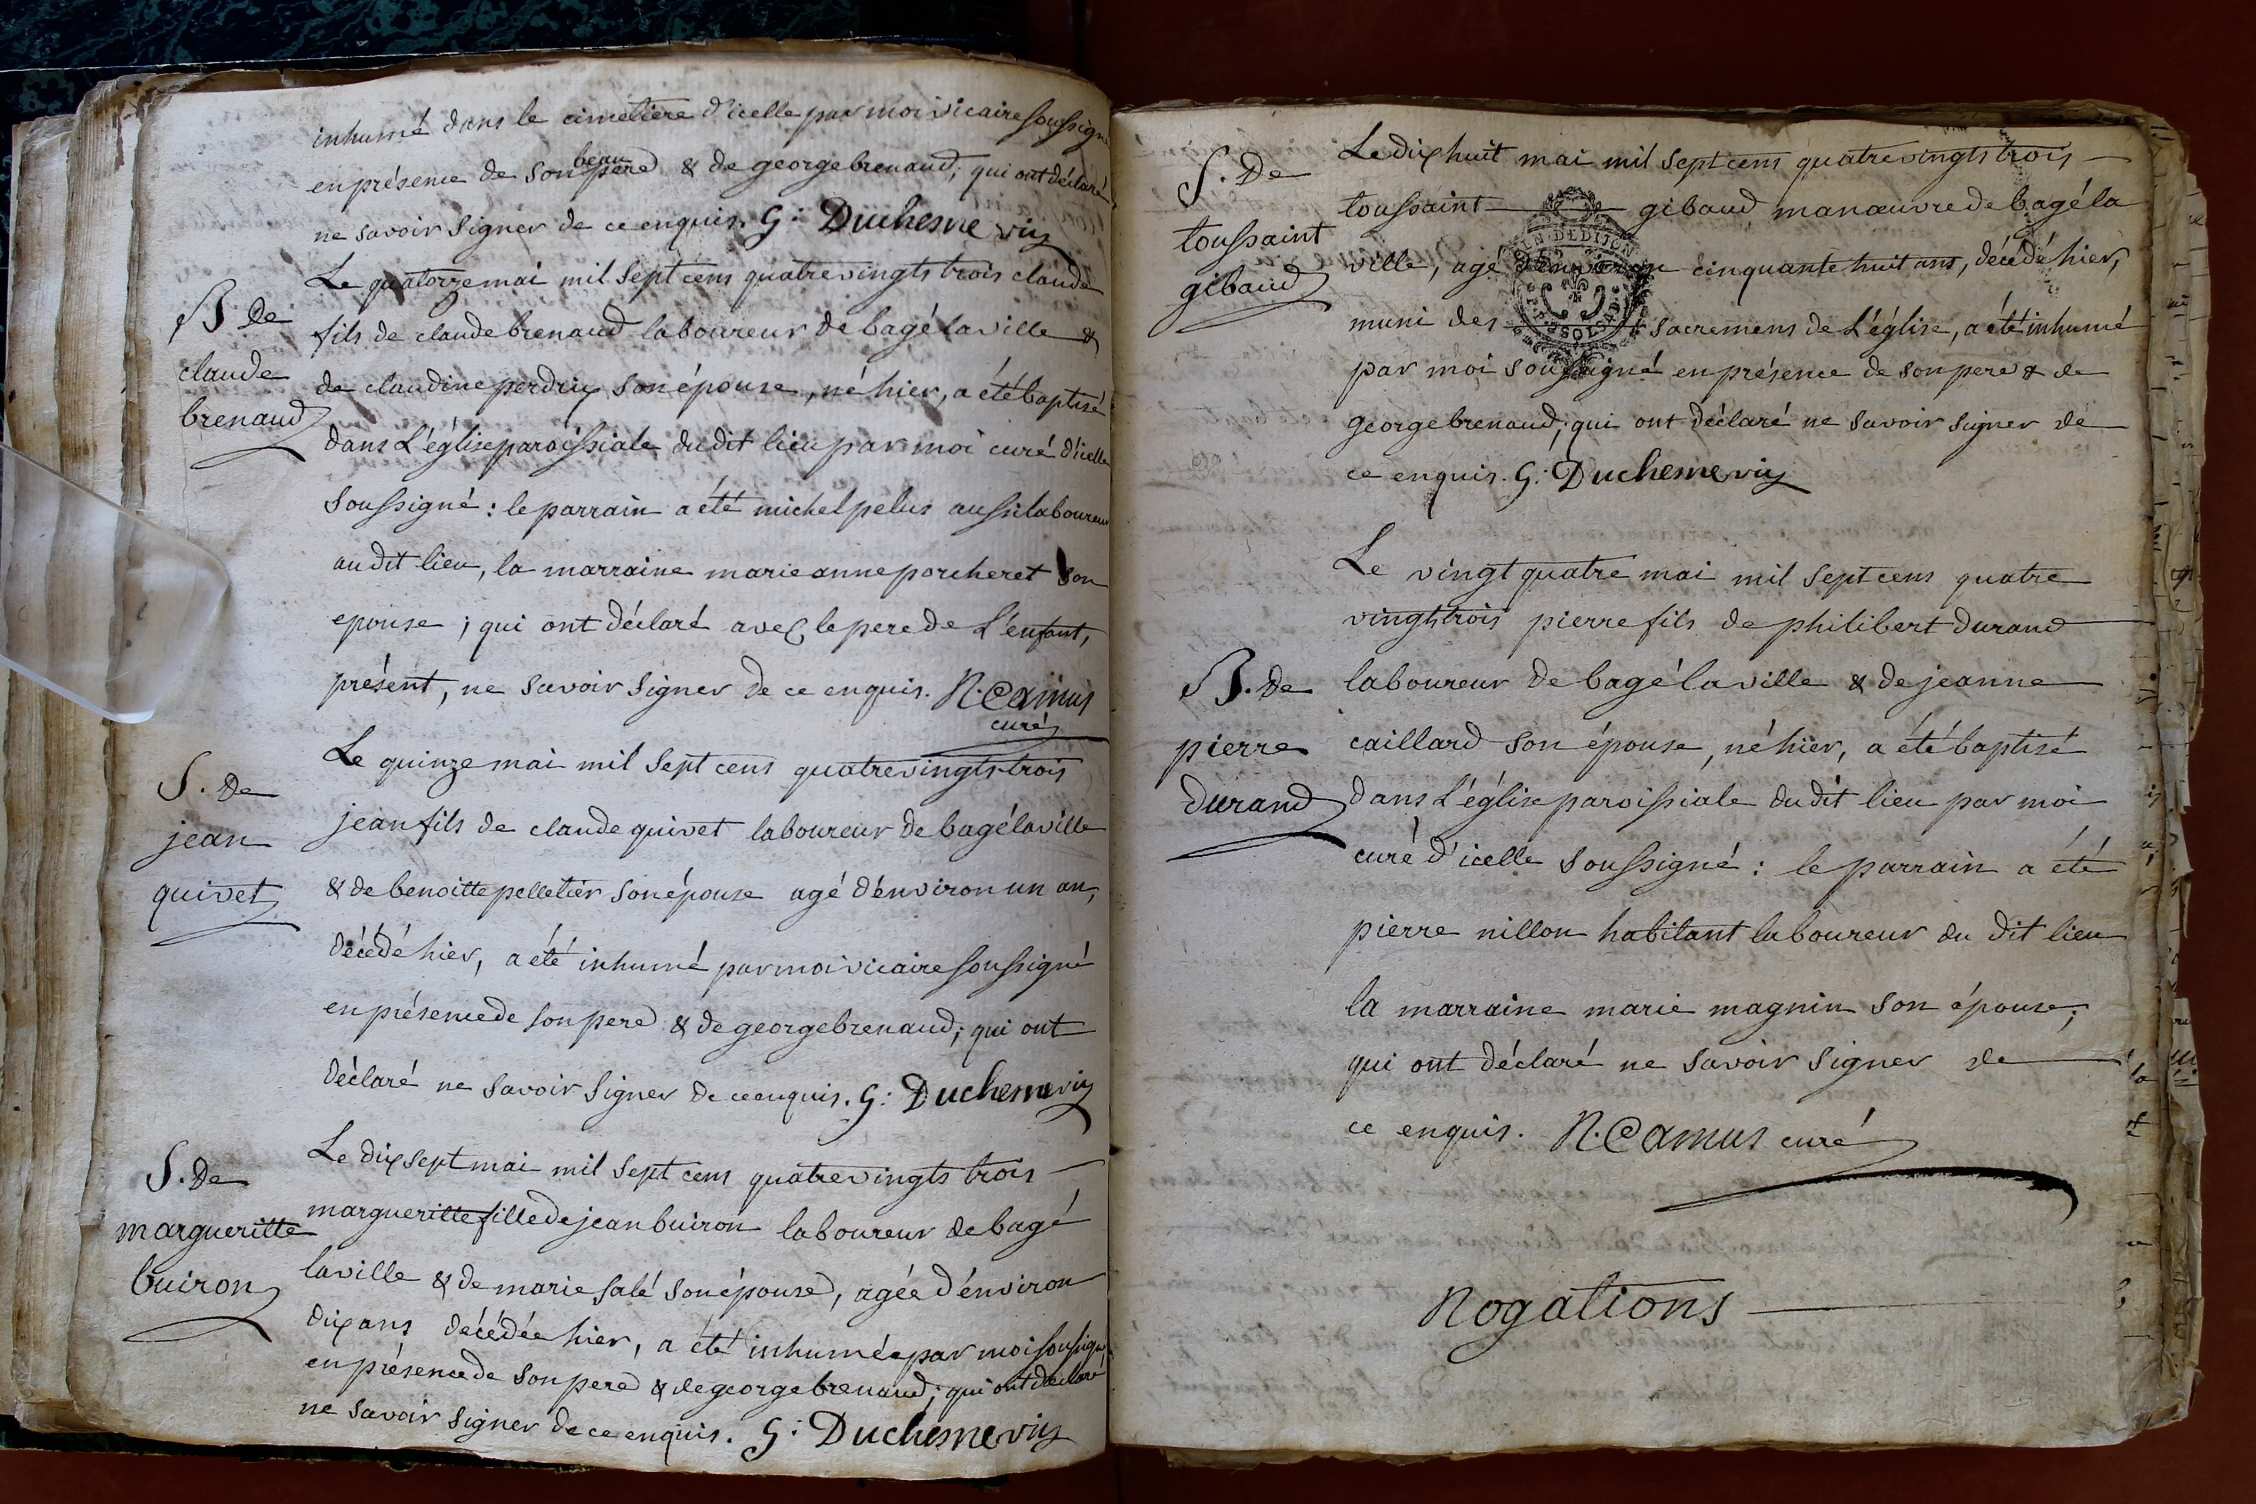 inhumé dans le cimetiere d'icelle par moi vicaire soussigné
beau
en présence de son pere & de george brenaud; qui ont déclaré
ne savoir signer de ce enquis. G: Duchesne vic
B. De
claude
brenaud
Le quatorze mai mil sept cens quatre vingts trois claude
fils de claude brenaud laboureur de bagé la ville &
de claudine perdrix son épouse, né hier, a été baptisé
dans l'église paroissiale du dit lieu par moi curé d'icelle
soussigné: le parrain a été michel pelus aussi laboureur
au dit lieu, la marraine marie anne porcheret son
epouse; qui ont déclaré avec le pere de l'enfant,
présent, ne savoir signer de ce enquis. N. Camus
curé
S. De
jean
quivet
Le quinze mai mil sept cens quatre vingts trois
jean fils de claude quivet laboureur de bagé la ville
& de benoitte pelletier son épouse agé d'énviron un an,
décédé hier, a été inhumé par moi vicaire soussigné
en présence de son pere & de george brenaud; qui ont
déclaré ne savoir signer de ce enquis. G: Duchesne vic
S. De
margueritte
buiron
Le dix sept mai mil sept cens quatre vingts trois
margueritte fille de jean buiron laboureur de bagé
la ville & de marie salé son épouse, agée d'énviron
dix ans décédée hier, a été inhumée par moi soussigné
en présence de son pere & de george brenaud; qui ont déclaré
ne savoir signer de ce enquis. G: Duchesne vic
S. De
toussaint
gibaud
Le dix huit mai mil sept cens quatre vingts trois
toussaint gibaud manœuvre de bagé la
ville, agé d'énviron cinquante huit ans, décédé hier,
muni des sacremens de l'église, a été inhumé
par moi soussigné en présence de son pere & de
george brenaud; qui ont déclaré ne savoir signer de
ce enquis. G: Duchesne vic
B. De
pierre
durand
Le vingt quatre mai mil sept cens quatre
vingts trois pierre fils de philibert durand
laboureur de bagé la ville & de jeanne
caillard son épouse, né hier, a été baptisé
dans l'église paroissiale du dit lieu par moi
curé d'icelle soussigné: le parrain a été
pierre nillon habitant laboureur du dit lieu
la marraine marie magnin son épouse;
qui ont déclaré ne savoir signer de
ce enquis. N. Camus curé
Rogations